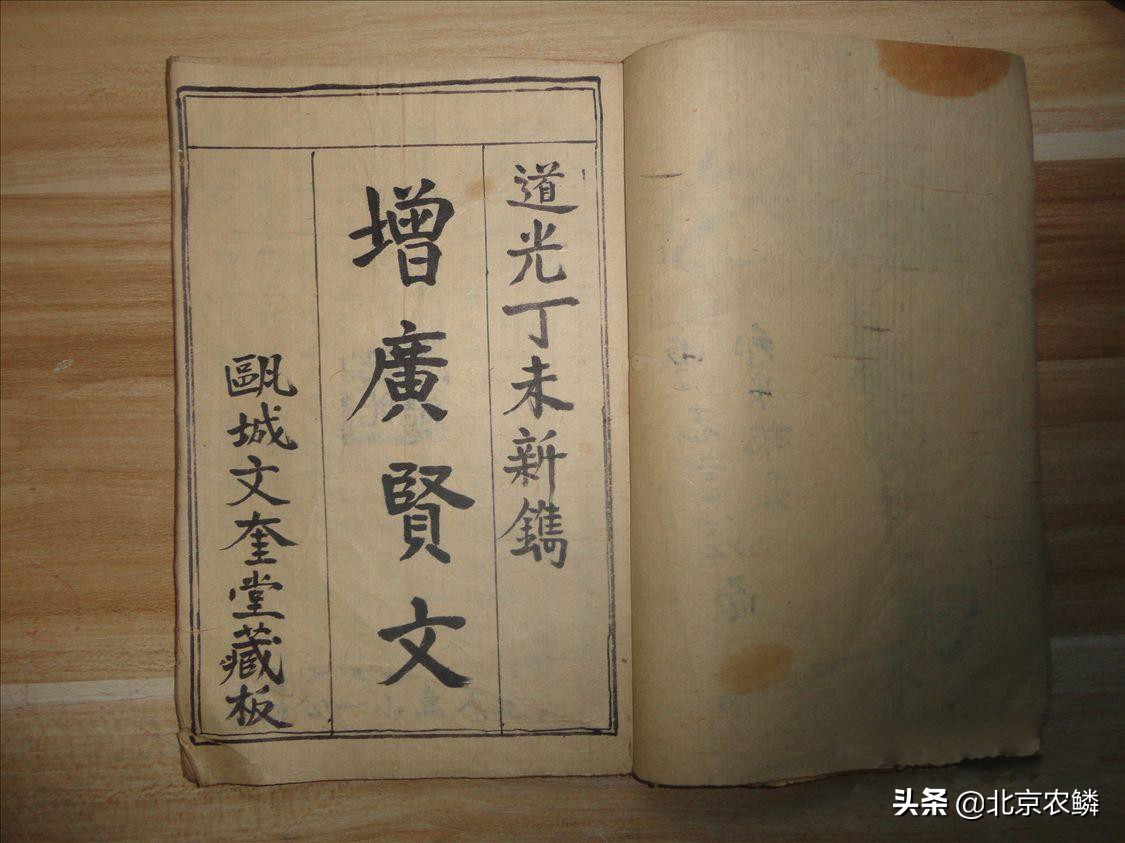 道光丁未新鐫
增廣賢文
甌城文奎堂藏板
头条 @北京农鳞